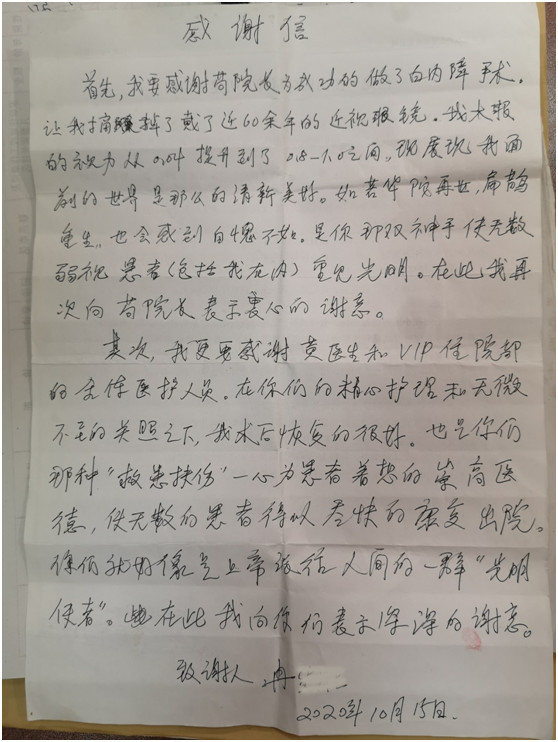 感谢信
首先,我要感谢苟院长为我成功的做了白内障手术,
让我摘掉了戴了近60余年的近视眼镜。我术眼
的视力从0.04提升到了0.8-1.0之间,现展现我面
前的世界是那么的清新美好。如若华陀再世,扁鹊
重生,也会感到自愧不如。是你那双神手使无数
弱视患者(包括我在内)重见光明。在此我再
次向苟院长表示衷心的谢意。
其次,我更要感谢黄医生和VIP住院部
的全体医护人员。在你们的精心护理和无微
不至的关照之下,我术后恢复的很好。也是你们
那种“救患扶伤”一心为患者着想的崇高医
德,使无数的患者得以尽快的康复出院。
你们就好像是上帝派给人间的一群“光明
使者”。在此我向你们表示深深的谢意。
致谢人:冉
2020年10月15日.